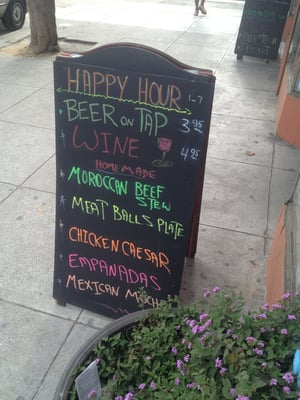 HAPPY HOUR 1-7
BEER ON TAP 3.95
WINE 4.95
HOMEMADE
MOROCCAN BEEF
STEW
MEAT BALLS PLATE
CHICKEN CAESAR
EMPANADAS
MEXICAN